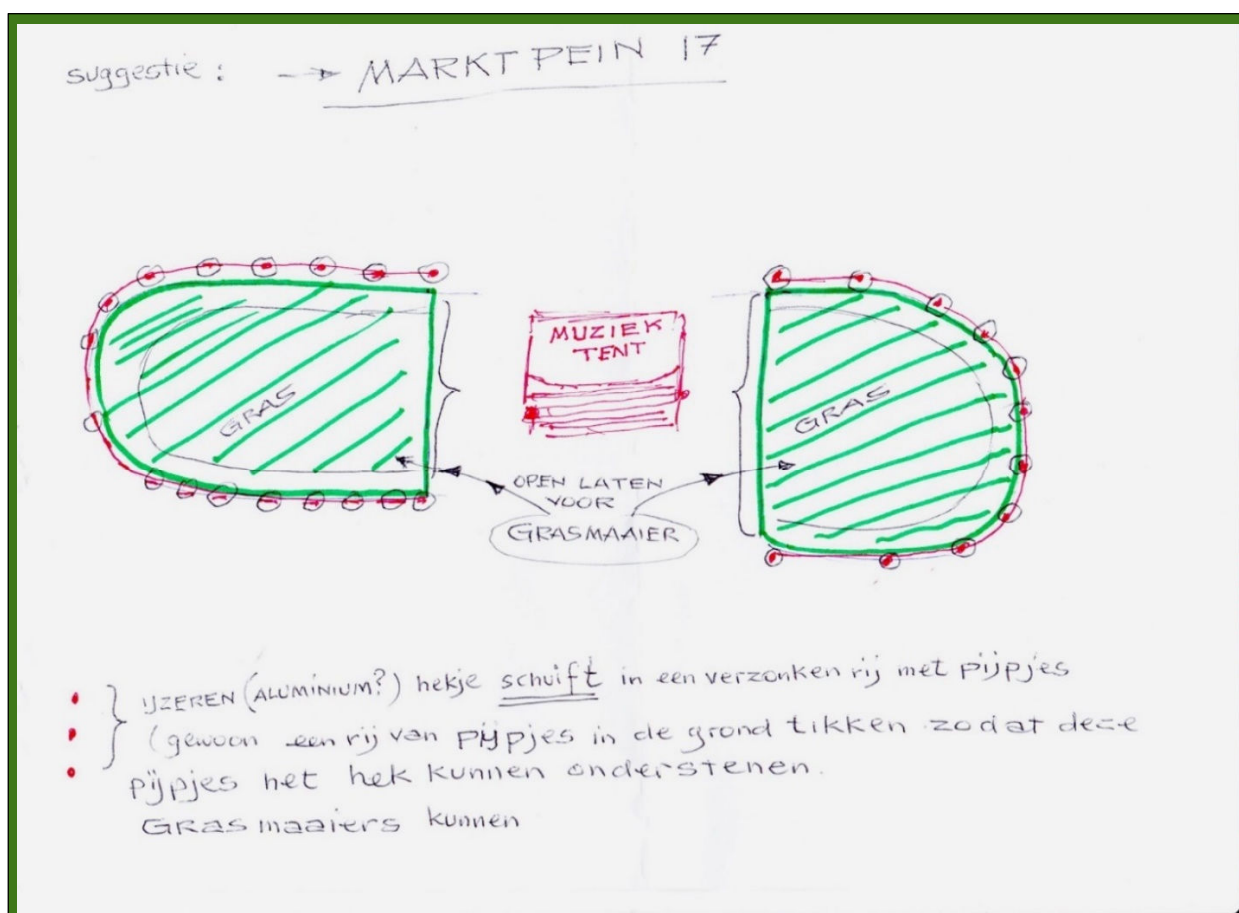 suggestie : → MARKTPEIN 17
MUZIEK
TENT
GRAS
GRAS
OPEN LATEN
VOOR
GRASMAAIER
IJZEREN (ALUMINIUM?) hekje schuift in een verzonken rij met pijpjes
(gewoon een rij van pijpjes in de grond tikken zodat deze
pijpjes het hek kunnen onderstenen.
GRASmaaiers kunnen